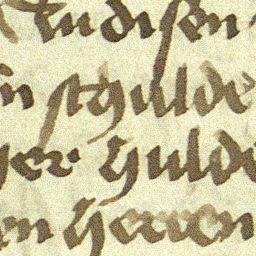 En disen
in schulde
her hulde
en herren